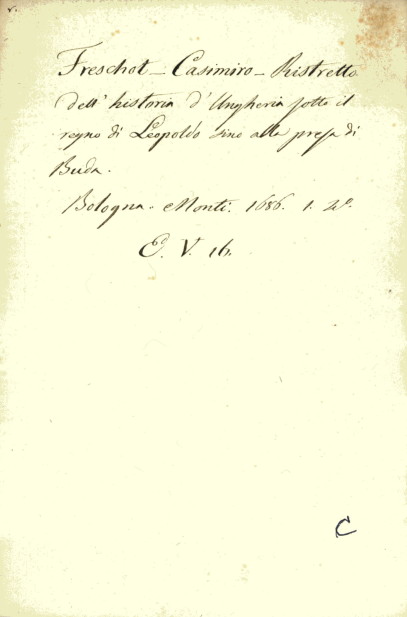 Freschot - Casimiro - Ristretto
dell' historia d'Ungheria sotto il
regno di Leopoldo sino alla presa di
Buda.
Bologna. Monti. 1686. 1. 4°.
E. V. 16.
C